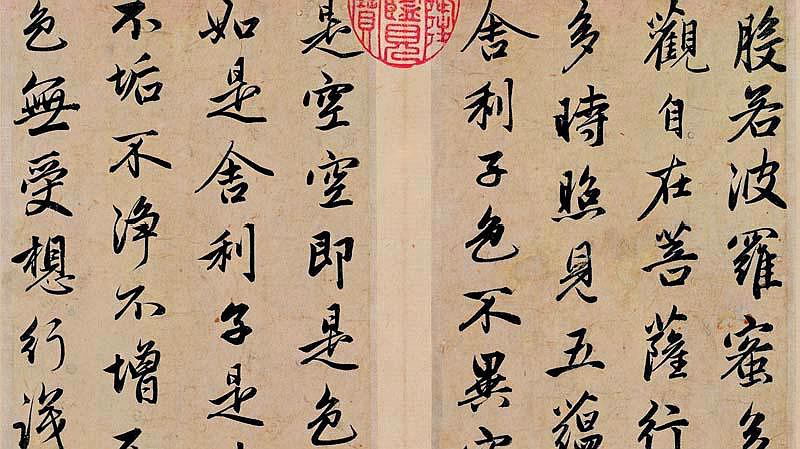 般若波羅蜜多
觀自在菩薩行
多時照見五蘊
舍利子色不異空
是空空即是色
如是舍利子是
不垢不淨不增不
色無受想行識